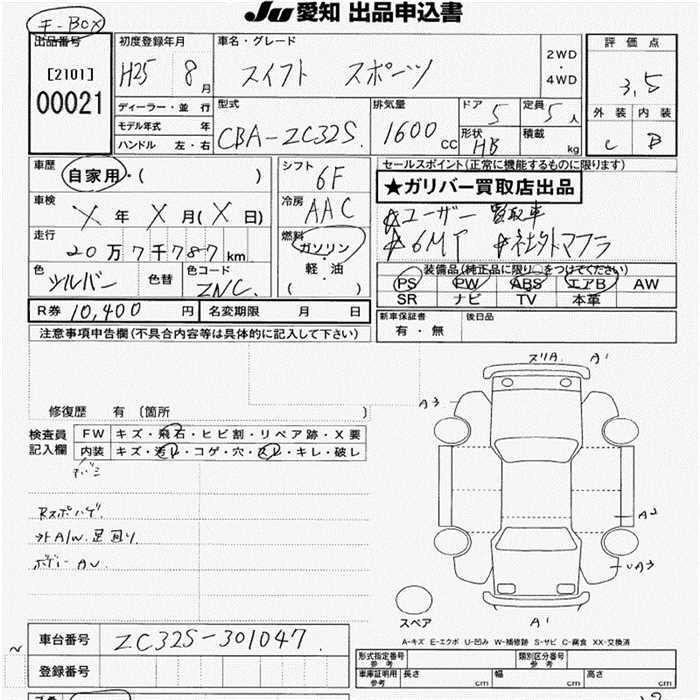 キ-BOX
JU 愛知 出品申込書
出品番号
[2101]
00021
初度登録年月
H25 8月
車名・グレード
スイフト スポーツ
2WD
・
4WD
評価点
3.5
外装 内装
C B
ディーラー・並行
モデル年式 年
ハンドル 左・右
型式
CBA-ZC32S
排気量
1600 CC
ドア 5
形状 HB
定員 5人
積載 kg
車歴
自家用・( )
シフト
6F
セールスポイント(正常に機能するものに限ります)
★ガリバー買取店出品
☆ユーザー買取車
☆6MT ☆社外マフラ
車検
X年 X月(X日)
冷房
AAC
走行
20万7千787km
燃料
ガソリン
・
軽・油
( )
色
シルバー
色替
色コード
ZNC.
装備品(純正品に限り○をつけてください)
PS PW ABS エアB AW
SR ナビ TV 本革
R券 10,400 円
名変期限 月 日
新車保証書
有・無
後日品
注意事項申告欄(不具合内容等は具体的に記入して下さい)
修復歴 有 [箇所 ]
検査員
記入欄
FW キズ・飛石・ヒビ割・リペア跡・X要
内装 キズ・汚レ・コゲ・穴・スレ・キレ・破レ
Rスポハゲ
外A/W.足回り.
ボデーAU
スリA. A1
A3
A2
UA3
A1
スペア
A-キズ E-エクボ U-凹み W-補修跡 S-サビ C-腐食 XX-交換済
車台番号 ZC32S-301047
登録番号
形式指定番号
参考
類別区分番号
参考
車庫証明用
参考
長さ cm 幅 cm 高さ cm